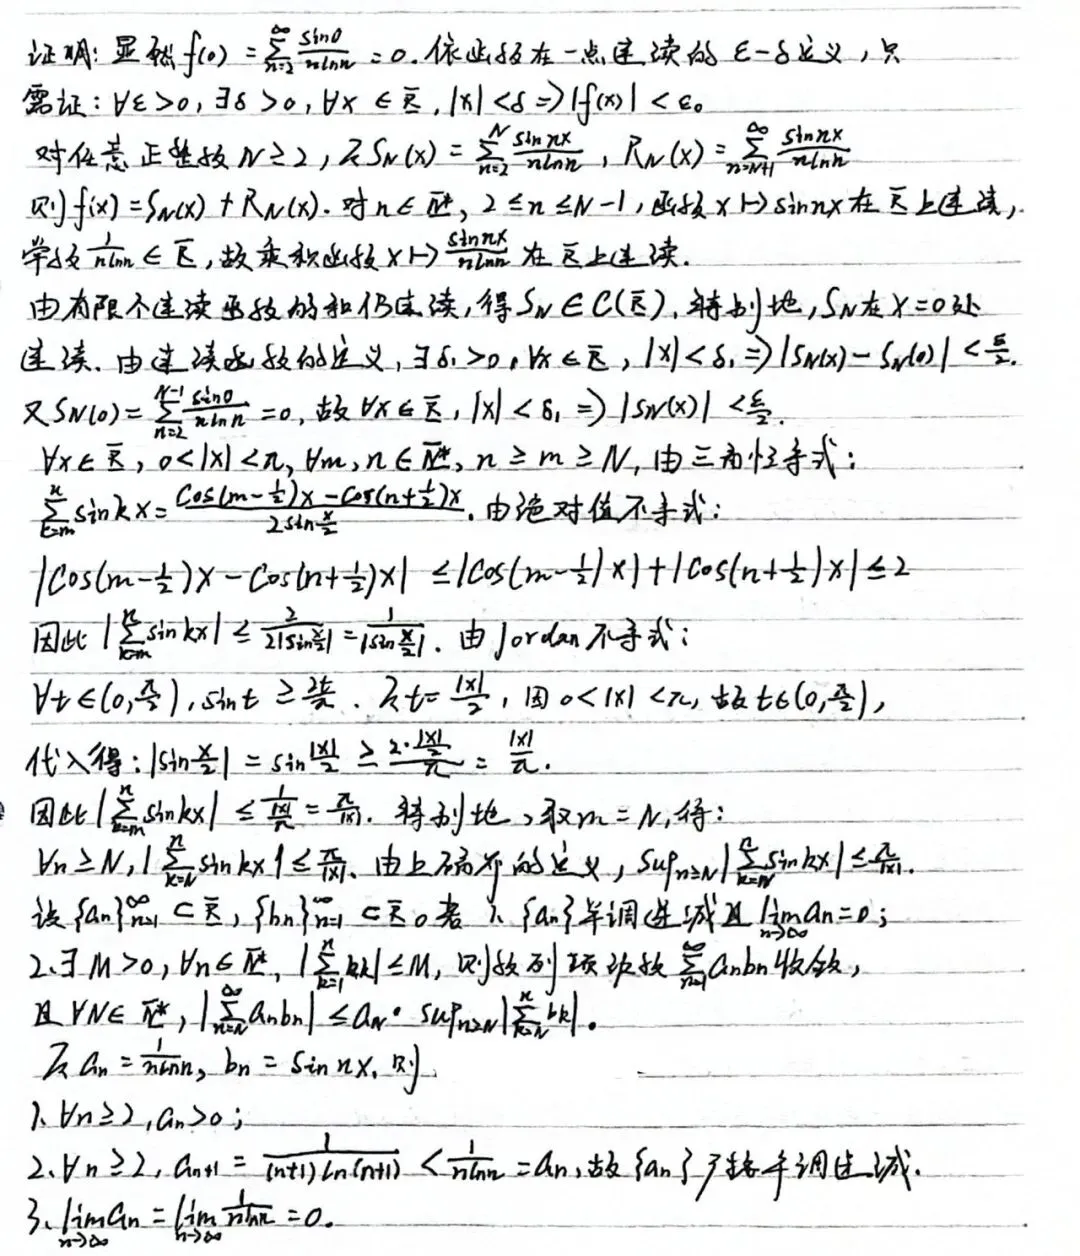 证明: 显然 f(0) = ∑_{n=2}^{∞} sin0/(n ln n) = 0. 依函数在一点连续的 ε-δ定义, 只
需证: ∀ε>0, ∃δ>0, ∀x∈ℝ, |x|<δ ⇒ |f(x)|<ε。
对任意正整数 N≥2, 令 S_N(x) = ∑_{n=2}^{N} sin nx/(n ln n), R_N(x) = ∑_{n=N+1}^{∞} sin nx/(n ln n)
则 f(x) = S_N(x) + R_N(x). 对 n∈ℕ*, 2≤n≤N-1, 函数 x↦sin nx 在ℝ上连续,
常数 1/(n ln n) ∈ ℝ, 故乘积函数 x↦ sin nx/(n ln n) 在ℝ上连续.
由有限个连续函数的和仍连续, 得 S_N∈C(ℝ), 特别地, S_N在 x=0处
连续. 由连续函数的定义, ∃δ₁>0, ∀x∈ℝ, |x|<δ₁ ⇒ |S_N(x) - S_N(0)| < ε/2.
又 S_N(0) = ∑_{n=2}^{N-1} sin0/(n ln n) = 0, 故 ∀x∈ℝ, |x|<δ₁ ⇒ |S_N(x)| < ε/2.
∀x∈ℝ, 0<|x|<π, ∀m,n∈ℕ*, n≥m≥N, 由三角恒等式:
∑_{k=m}^{n} sin kx = (cos(m-1/2)x - cos(n+1/2)x)/(2sin x/2). 由绝对值不等式:
|cos(m-1/2)x - cos(n+1/2)x| ≤ |cos(m-1/2)x| + |cos(n+1/2)x| ≤ 2
因此 |∑_{k=m}^{n} sin kx| ≤ 2/(2|sin x/2|) = 1/|sin x/2|. 由 Jordan 不等式:
∀t∈(0,π/2), sin t ≥ 2t/π. 令 t = |x|/2, 因 0<|x|<π, 故 t∈(0,π/2),
代入得: |sin x/2| = sin |x|/2 ≥ (2·|x|/2)/π = |x|/π.
因此 |∑_{k=m}^{n} sin kx| ≤ 1/(|x|/π) = π/|x|. 特别地, 取 m=N, 得:
∀n≥N, |∑_{k=N}^{n} sin kx| ≤ π/|x|. 由上确界的定义, sup_{n≥N} |∑_{k=N}^{n} sin kx| ≤ π/|x|.
设 {an}_{n=1}^{∞} ⊂ ℝ, {bn}_{n=1}^{∞} ⊂ ℝ。若 1. {an} 单调递减且 lim_{n→∞} an = 0;
2. ∃M>0, ∀n∈ℕ*, |∑_{k=1}^{n} bk| ≤ M, 则数列项级数 ∑_{n=1}^{∞} anbn 收敛,
且 ∀N∈ℕ*, |∑_{n=N}^{∞} anbn| ≤ a_N · sup_{n≥N} |∑_{k=N}^{n} bk|.
令 an = 1/(n ln n), bn = sin nx, 则
1. ∀n≥2, an>0;
2. ∀n≥2, a_{n+1} = 1/((n+1) ln(n+1)) < 1/(n ln n) = an, 故 {an} 严格单调递减.
3. lim_{n→∞} an = lim_{n→∞} 1/(n ln n) = 0.